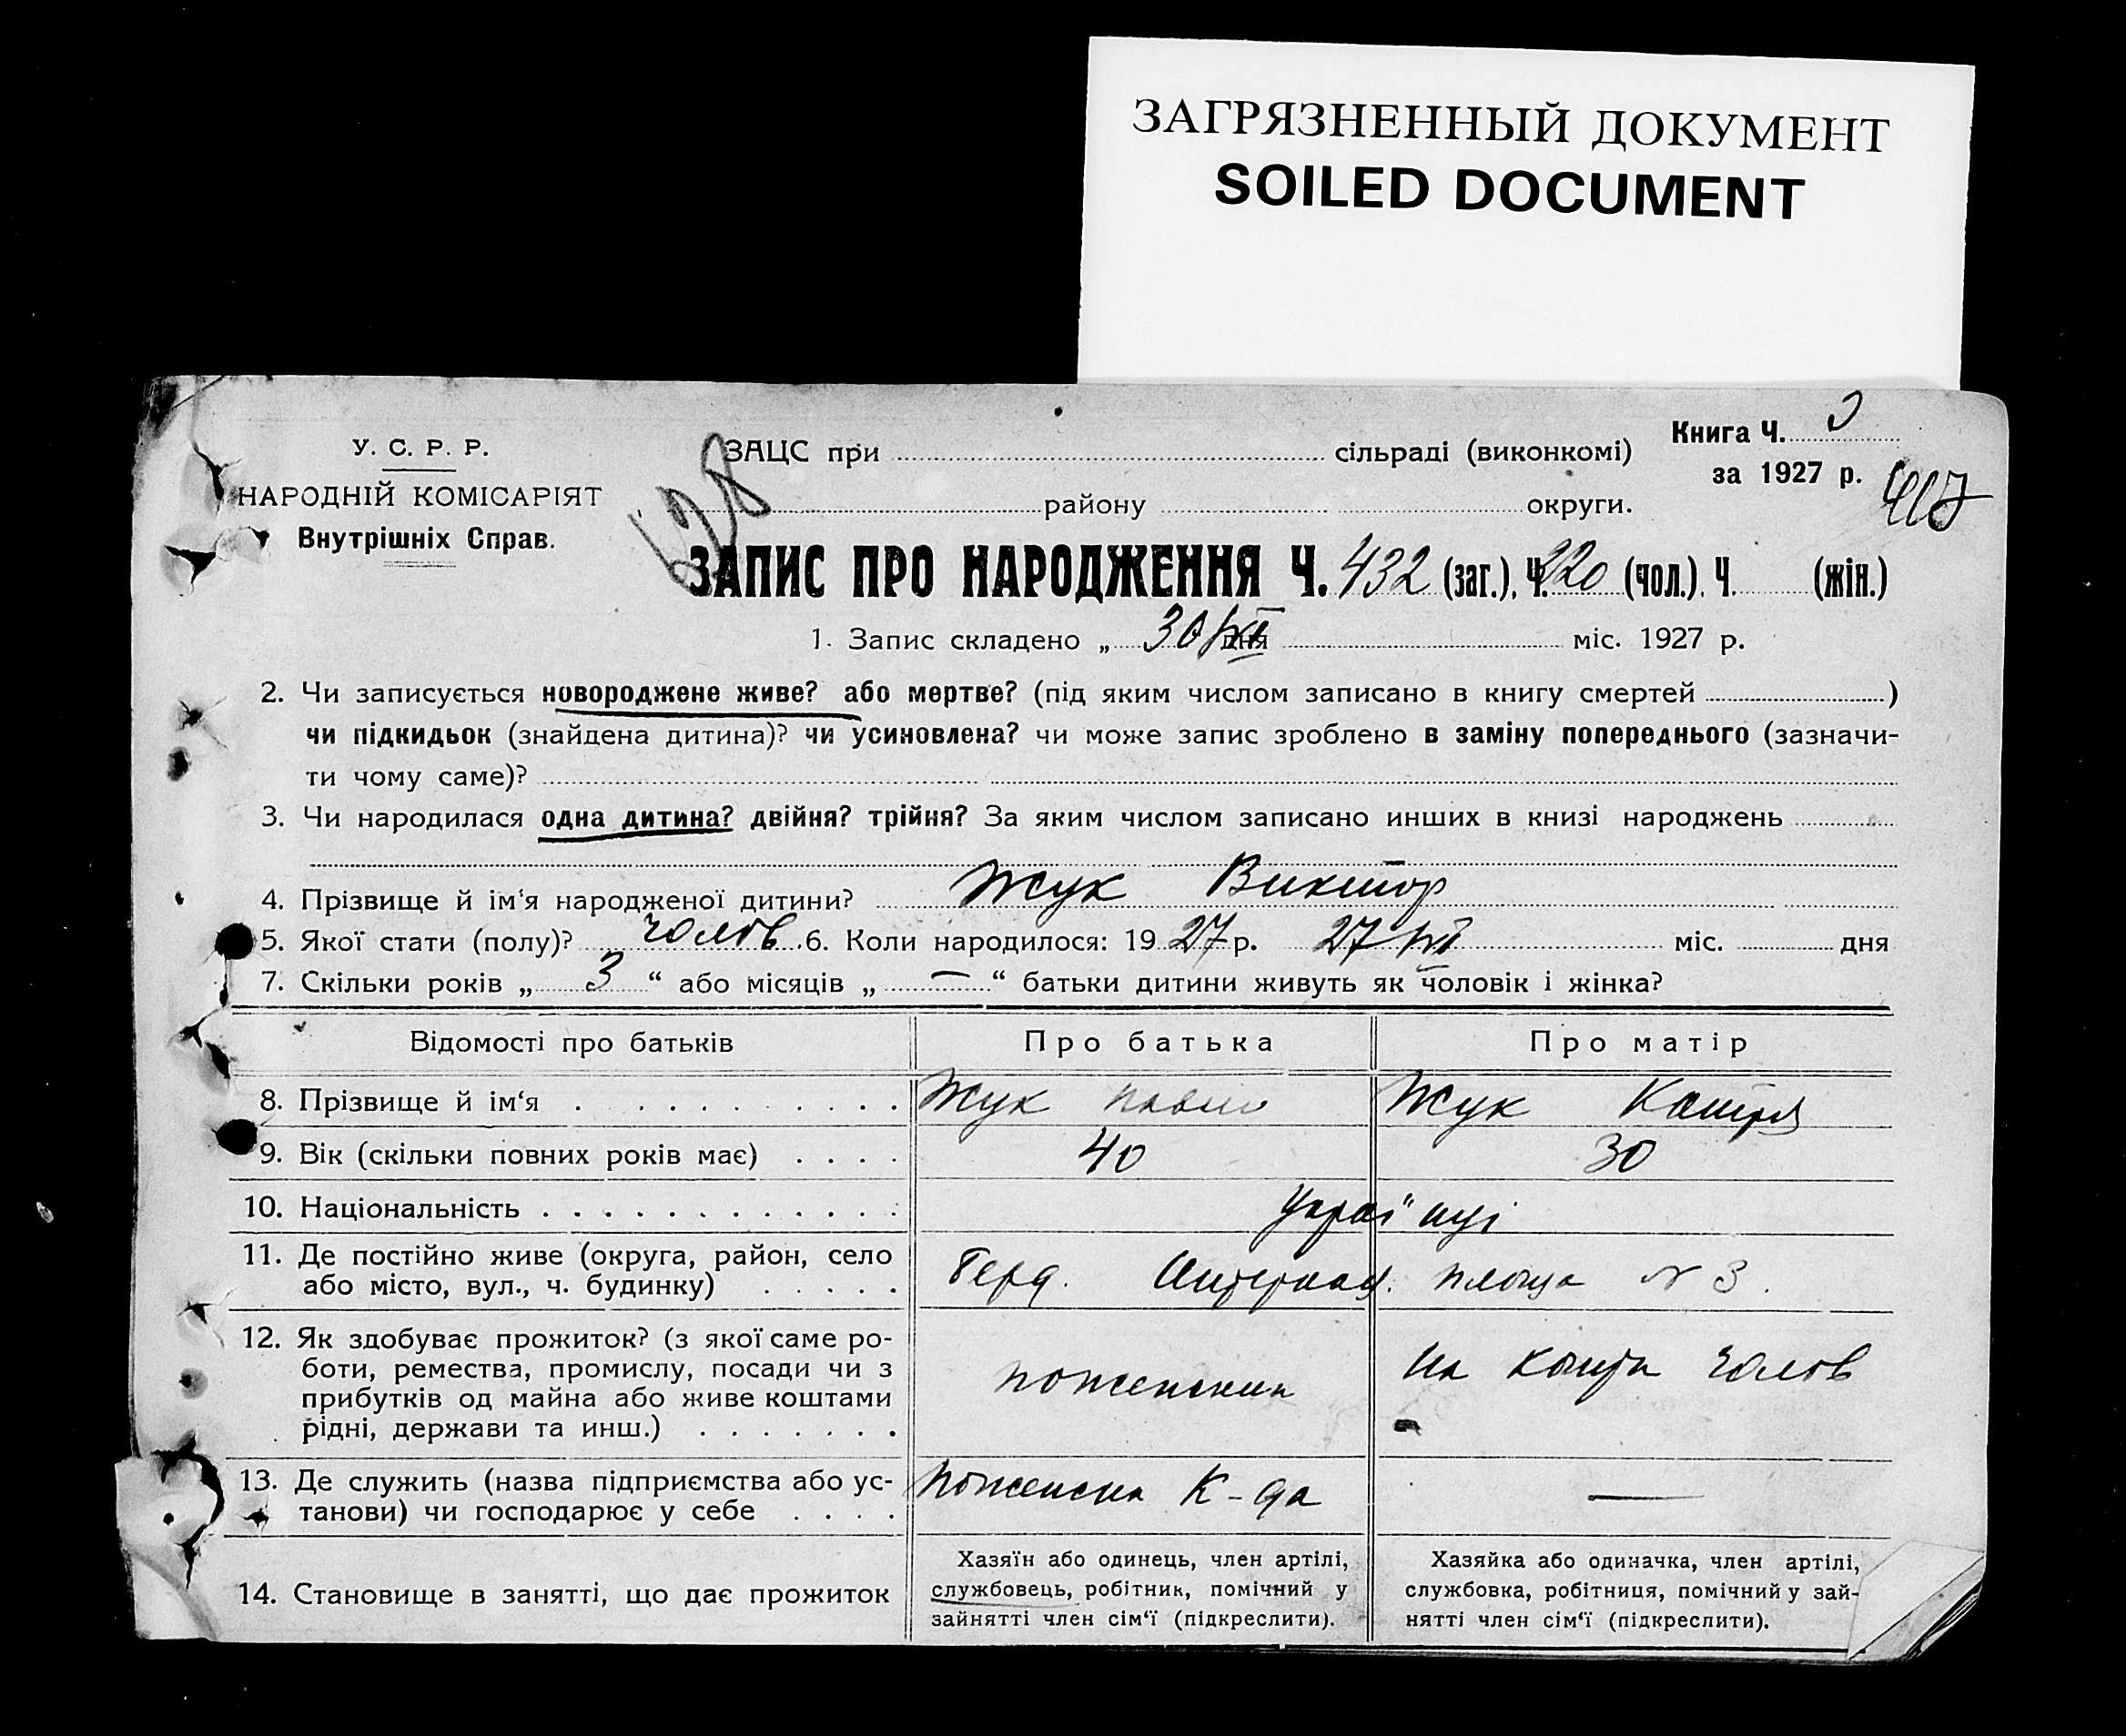 ЗАГРЯЗНЕННЫЙ ДОКУМЕНТ
SOILED DOCUMENT
У. С. Р. Р.
НАРОДНІЙ КОМІСАРІЯТ
Внутрішніх Справ.
ЗАЦС при сільраді (виконкомі)
району округи.
Книга Ч.
за 1927 р.
ЗАПИС ПРО НАРОДЖЕННЯ Ч. 432 (заг.), Ч. 220 (чол.). Ч. (жін.)
1. Запис складено „ 30/XII дня міс. 1927 р.
2. Чи записується новороджене живе? або мертве? (під яким числом записано в книгу смертей )
чи підкидьок (знайдена дитина)? чи усиновлена? чи може запис зроблено в заміну попереднього (зазначи-
ти чому саме)?
3. Чи народилася одна дитина? двійня? трійня? За яким числом записано инших в книзі народжень
4. Прізвище й ім‘я народженої дитини? Жук Виктор
5. Якої стати (полу)? чолов. 6. Коли народилося: 1927 р. 27 міс. дня
7. Скільки років „ 3 “ або місяців „ — “ батьки дитини живуть як чоловік і жінка?
Відомості про батьків Про батька Про матір
8. Прізвище й ім‘я Жук Павло Жук Катря
9. Вік (скільки повних років має) 40 30
10. Національність Українці
11. Де постійно живе (округа, район, село
або місто, вул., ч. будинку) площа № 3.
12. Як здобуває прожиток? (з якої саме ро-
боти, ремества, промислу, посади чи з
прибутків од майна або живе коштами
рідні, держави та инш.) На кошти чолов
13. Де служить (назва підприємства або ус-
танови) чи господарює у себе К-да —
14. Становище в занятті, що дає прожиток
Хазяїн або одинець, член артілі,
службовець, робітник, помічний у
зайнятті член сім‘ї (підкреслити).
Хазяйка або одиначка, член артілі,
службовка, робітниця, помічний у зай-
нятті член сім‘ї (підкреслити).